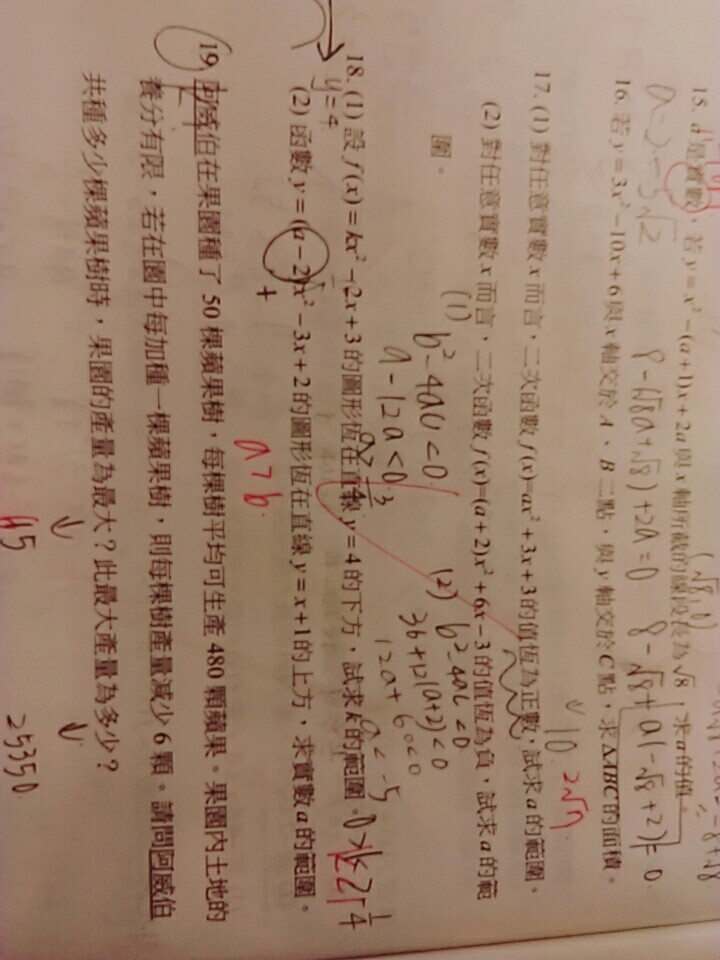 15. a 是實數，若 y = x² − (a+1)x + 2a 與 x 軸所截的線段長為 √8，求 a 的值。
(√8, 0)
a = 2 - 3√2
8 - (√8a + √8) + 2a = 0
8 - √8 + a(-√8 + 2) = 0
16. 若 y = 3x² − 10x + 6 與 x 軸交於 A、B 二點，與 y 軸交於 C 點，求 ΔABC 的面積。
10
2√7
17. (1) 對任意實數 x 而言，二次函數 f(x) = ax² + 3x + 3 的值恆為正數，試求 a 的範圍。
(2) 對任意實數 x 而言，二次函數 f(x) = (a+2)x² + 6x − 3 的值恆為負，試求 a 的範
圍。
(1) b² - 4ac < 0
a - 12a < 0
a > 3/4
(2) b² - 4ac < 0
36 + 12(a+2) < 0
12a + 60 < 0
a < -5
18. (1) 設 f(x) = kx² − 2x + 3 的圖形恆在直線 y = 4 的下方，試求 k 的範圍。
y = 4
(2) 函數 y = (a−2)x² − 3x + 2 的圖形恆在直線 y = x + 1 的上方，求實數 a 的範圍。
+
a > 6
19. 回威伯在果園種了 50 棵蘋果樹，每棵樹平均可生產 480 顆蘋果。果園內土地的
養分有限，若在園中每加種一棵蘋果樹，則每棵樹產量減少 6 顆。請問回威伯
共種多少棵蘋果樹時，果園的產量為最大？此最大產量為多少？
65
25350